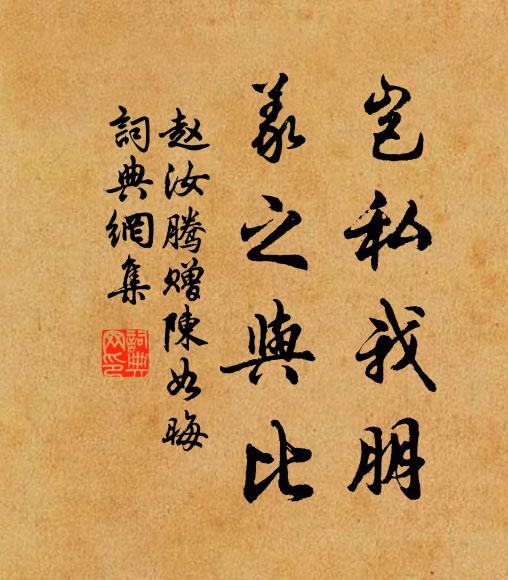 岂私我朋
义之與比
赵汝腾赠陳如晦
詞典網集
詞典网印